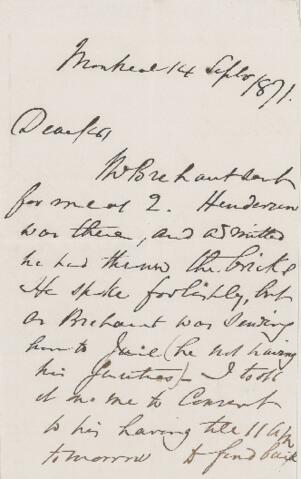 Montreal 14 Septr 1871.
Dear Sir
Mr Brehaut sent
for me at 2. Henderson
was there, and admitted
he had thrown the bricks
He spoke foolishly, but
as Brehaut was sending
him to Jail (he not having
his sureties) I took
it on me to Consent
to his having till 11 A/M
tomorrow to find bail